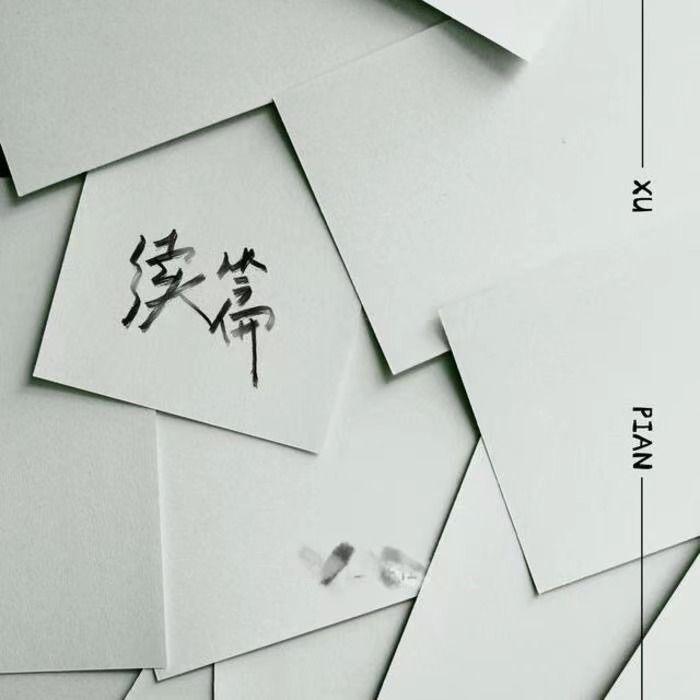 续篇
XU
PIAN